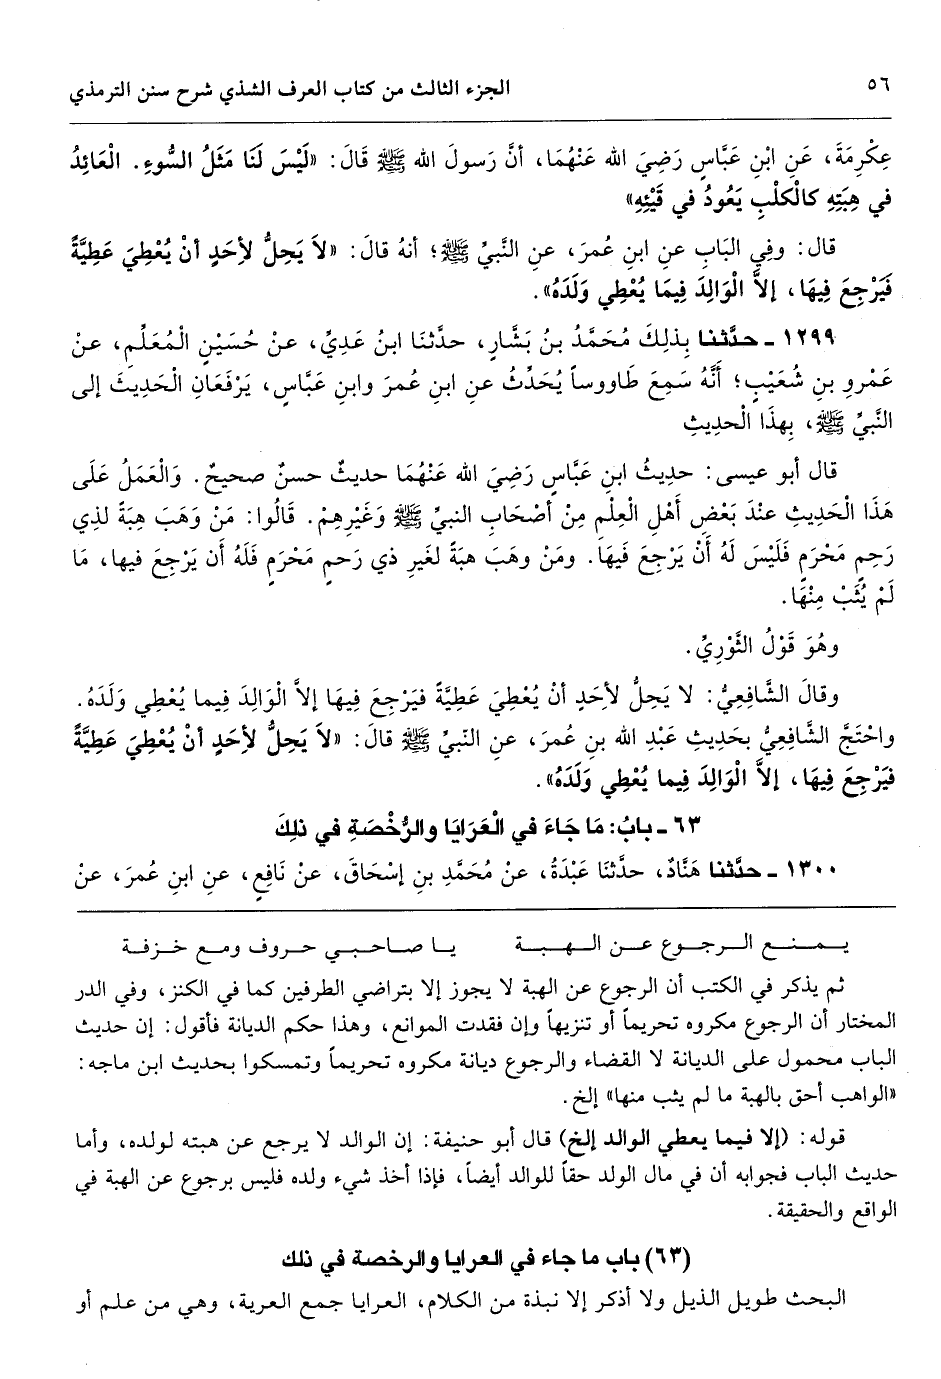 ٥٦
الجزء الثالث من كتاب العرف الشذي شرح سنن الترمذي
عِكْرِمَةَ، عَنِ ابْنِ عَبَّاسٍ رَضِيَ الله عَنْهُمَا، أنَّ رَسولَ الله ﷺ قَالَ: «لَيْسَ لَنَا مَثَلُ السُّوءِ. الْعَائِدُ
في هِبَتِهِ كالْكلْبِ يَعُودُ في قَيْئِهِ»
قال: وفِي البَابِ عنِ ابنِ عُمرَ، عنِ النَّبيِّ ﷺ؛ أنهُ قالَ: «لاَ يَحِلُّ لأحَدٍ أنْ يُعْطِيَ عَطِيَّةً
فَيَرْجِعَ فِيهَا، إلاَّ الْوَالِدَ فِيمَا يُعْطِي وَلَدَهُ».
١٢٩٩ ـ حدَّثنا بِذلِكَ مُحَمَّدُ بنُ بَشَّارٍ، حدَّثنَا ابنُ عَدِيٍّ، عنْ حُسَيْنٍ الْمُعَلِّمِ، عنْ
عَمْرِو بنِ شُعَيْبٍ؛ أَنَّهُ سَمِعَ طَاووساً يُحَدِّثُ عنِ ابنِ عُمرَ وابنِ عَبَّاسٍ، يَرْفَعَانِ الْحَدِيثَ إلى
النَّبيِّ ﷺ، بِهذَا الْحَدِيثِ
قال أبو عيسى: حديثُ ابنِ عَبَّاسٍ رَضِيَ الله عَنْهُمَا حديثٌ حسنٌ صحيحٌ. وَالْعَمَلُ عَلَى
هَذَا الْحَديثِ عنْدَ بَعْضِ أَهْلِ الْعِلْمِ مِنْ أصْحَابِ النبيِّ ﷺ وَغَيْرِهِمْ. قَالُوا: مَنْ وَهَبَ هِبَةً لذِي
رَحِمٍ مَحْرَمٍ فَلَيْسَ لَهُ أنْ يَرْجِعَ فَيهَا. ومَنْ وهَبَ هبَةً لغَيرِ ذي رَحمٍ مَحْرَمٍ فَلَهُ أن يَرْجِعَ فيها، مَا
لَمْ يُثَبْ مِنْهَا.
وهُوَ قَوْلُ الثَّوْرِيِّ.
وقالَ الشَّافِعِيُّ: لا يَحِلُّ لأحِدٍ أنْ يُعْطِيَ عَطِيَّةً فيَرْجِعَ فِيهَا إلاَّ الْوَالِدَ فِيما يُعْطِي وَلَدَهُ.
واحْتَجَّ الشَّافِعِيُّ بحَديثِ عَبْدِ الله بنِ عُمرَ، عنِ النّبيِّ ﷺ قالَ: «لاَ يَحِلُّ لأحَدٍ أنْ يُعْطِيَ عَطِيَّةً
فيَرْجِعَ فِيهَا، إلاَّ الْوَالِدَ فيما يُعْطي وَلَدَهُ».
٦٣ ـ بابُ: مَا جَاءَ في الْعَرَايَا والرُّخْصَةِ في ذلِكَ
١٣٠٠ ـ حدَّثنا هَنَّادٌ، حدَّثنَا عَبْدَةُ، عنْ مُحَمَّدِ بنِ إسْحَاقَ، عنْ نَافِعٍ، عنِ ابنِ عُمرَ، عنْ
يـمـنـع الـرجـوع عـن الـهـبـة    يـا صـاحـبـي حـروف ومـع خـزفـة
ثم يذكر في الكتب أن الرجوع عن الهبة لا يجوز إلا بتراضي الطرفين كما في الكنز، وفي الدر
المختار أن الرجوع مكروه تحريماً أو تنزيهاً وإن فقدت الموانع، وهذا حكم الديانة فأقول: إن حديث
الباب محمول على الديانة لا القضاء والرجوع ديانة مكروه تحريماً وتمسكوا بحديث ابن ماجه:
«الواهب أحق بالهبة ما لم يثب منها» إلخ.
قوله: (إلا فيما يعطي الوالد إلخ) قال أبو حنيفة: إن الوالد لا يرجع عن هبته لولده، وأما
حديث الباب فجوابه أن في مال الولد حقاً للوالد أيضاً، فإذا أخذ شيء ولده فليس برجوع عن الهبة في
الواقع والحقيقة.
(٦٣) باب ما جاء في العرايا والرخصة في ذلك
البحث طويل الذيل ولا أذكر إلا نبذة من الكلام، العرايا جمع العرية، وهي من علم أو